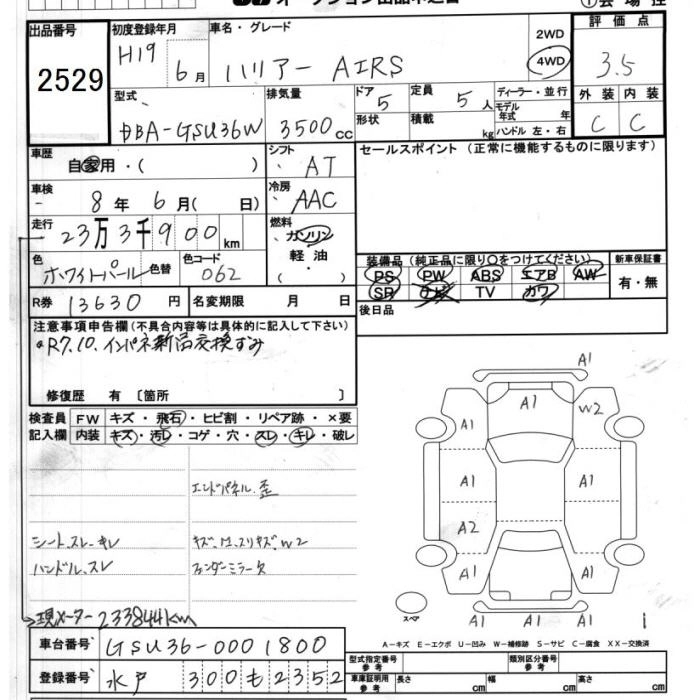 出品番号
2529
初度登録年月
H19 6月
車名・グレード
ハリアー AIRS
2WD
4WD
評価点
3.5
型式
DBA-GSU36W
排気量
3500cc
ドア 5
形状
定員 5人
積載 kg
ディーラー・並行
モデル年式 年
ハンドル 左・右
外装 内装
C C
車歴
自家用・( )
シフト
AT
セールスポイント (正常に機能するものに限ります)
車検
8年 6月( 日)
冷房
AAC
走行
23万3千900km
燃料
ガソリン
軽油
・( )
色
ホワイトパール
色替
色コード
062
装備品(純正品に限り○をつけてください)
PS PW ABS エアB AW
SR ナビ TV カワ
新車保証書
有・無
R券 13630円
名変期限 月 日
後日品
注意事項申告欄(不具合内容等は具体的に記入して下さい)
R7.10.インパネ新品交換すみ
修復歴 有 〔箇所 〕
検査員
記入欄
FW キズ・飛石・ヒビ割・リペア跡・×要
内装 キズ・汚レ・コゲ・穴・スレ・キレ・破レ
エンドパネル.歪
シート.スレ.キレ
キズ.凹.スリキズ.W2
ハンドル.スレ
フェンダーミラー欠
現メーター233844km
A1
A1
W2
A1
A1
A1
A2
A1
A1
A1
A1
A1
A1
スペア
A-キズ E-エクボ U-凹み W-補修跡 S-サビ C-腐食 XX-交換済
車台番号 GSU36-0001800
登録番号 水戸 300も2352
型式指定番号
参考
類別区分番号
参考
車庫証明用
参考
長さ cm
幅 cm
高さ cm